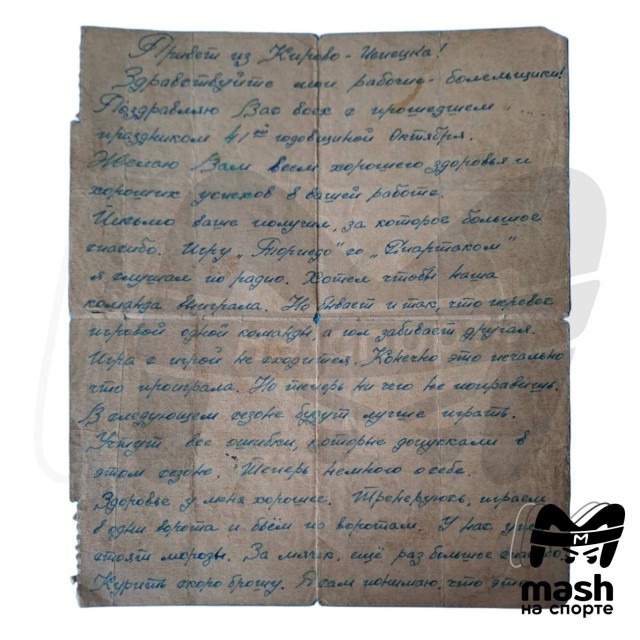 Привет из Кирово-Чепецка!
Здравствуйте мои рабочие-болельщики!
Поздравляю Вас всех с прошедшем
праздником 41ой годовщиной Октября.
Желаю Вам всем хорошего здоровья и
хороших успехов в вашей работе.
Письмо ваше получил, за которое большое
спасибо. Игру „Торпедо" со „Спартаком"
я слушал по радио. Хотел чтобы наша
команда выиграла. Но бывает и так, что перевес
игровой одной команды, а гол забивает другая.
Игра с игрой не сходится. Конечно это печально
что проиграла. Но теперь ни чего не поправишь.
В следующем сезоне будут лучше играть.
Учтут все ошибки, которые допускали в
этом сезоне. Теперь немного о себе.
Здоровье у меня хорошее. Тренеруюсь, играем
в одни ворота и бьём по воротам. У нас
стоят морозы. За мячик, ещё раз большое
Курить скоро брошу. Я сам понимаю, что это
M
mash
на спорте